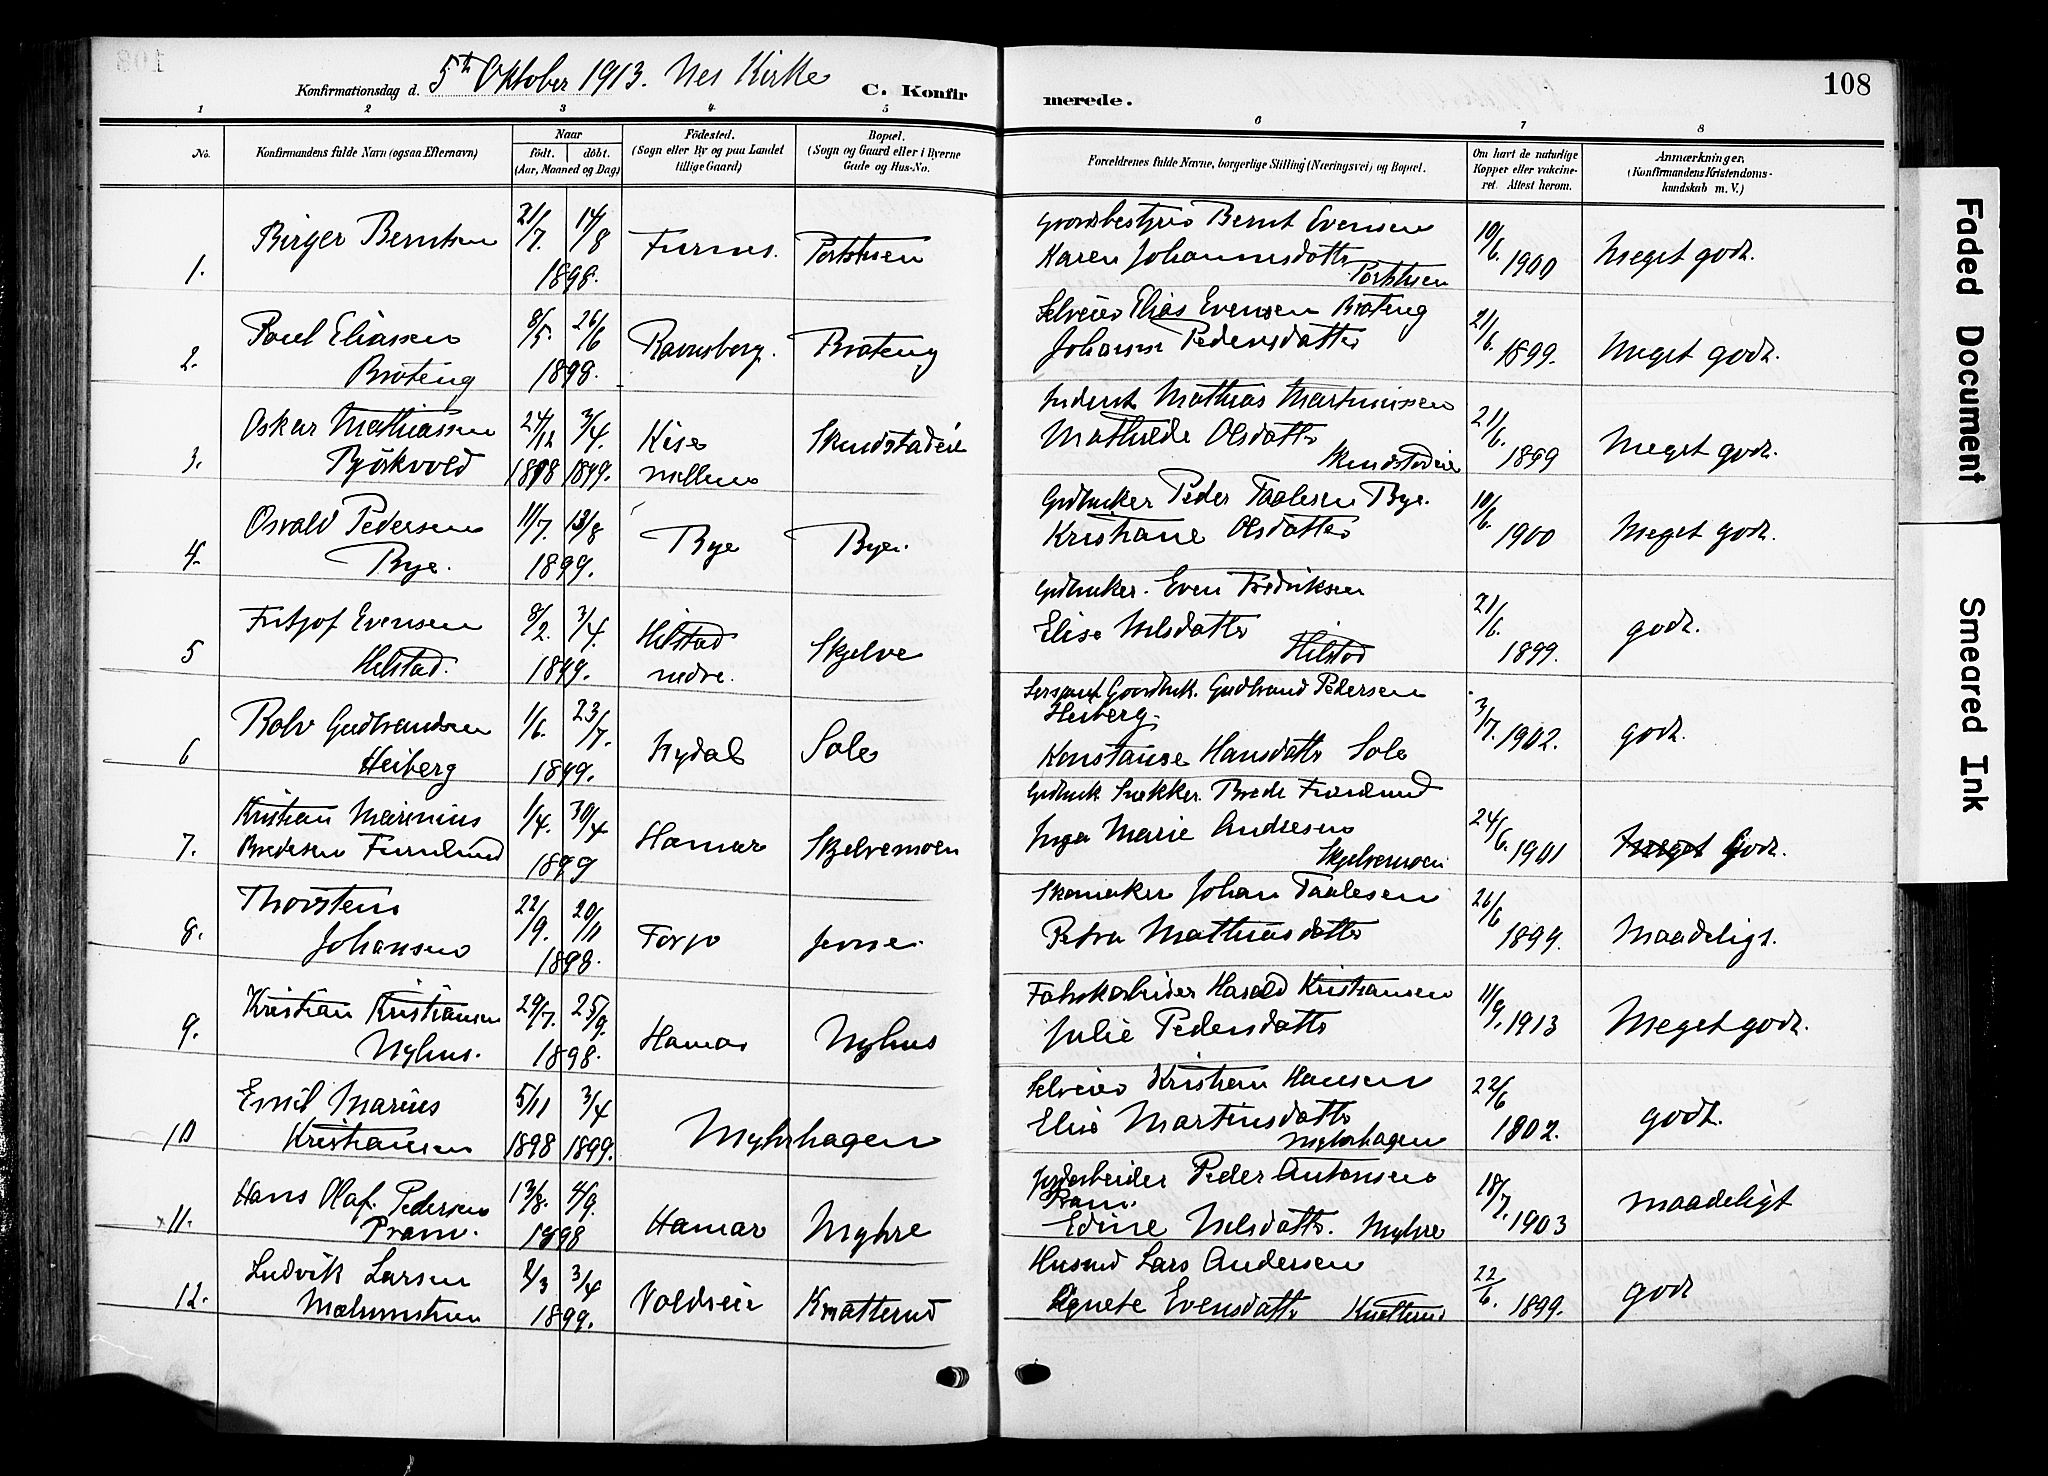 108
Konfirmationsdag d. 5th Oktober 1913. Nes Kirke
C. Konfirmerede.
1 2 3 4 5 6 7 8
No.
Konfirmandens fulde Navn (ogsaa Efternavn)
Naar
födt. döbt.
(Aar, Maaned og Dag)
Födested.
(Sogn eller By og paa Landet
tillige Gaard)
Bopæl.
(Sogn og Gaard eller i Byerne
Gade og Hus-No.
Forældrenes fulde Navne, borgerlige Stilling (Næringsvei) og Bopæl.
Om havt de naturlige
Kopper eller vakcine-
ret. Attest herom.
Anmærkninger.
(Konfirmandens Kristendoms-
kundskab m. V.)
1. Birger Berntsen 21/7. 14/8 1898. Furnes.
Bernt Evensen
Karen Johannesdatter
10/6. 1900 Meget godt.
2. Paul Eliassen
Bråteng
8/5. 26/6 1898. Ravnsberg. Bråteng
Selveier Elias Evensen Bråteng
Johanne Pedersdatter
21/6. 1899. Meget godt.
3. Oskar Mathiassen
Björkvold
24/12 1898 3/4. 1899. Kise
mellem
Skundstadeie
Inderst Mathias Martinissen
Mathilde Olsdatter
Skundstadeie
21/6. 1899 Meget godt.
4. Osvald Pedersen
Bye.
11/7. 13/8 1899. Bye Bye.
Gdbruker Peder Taalesen Bye.
Kristiane Olsdatter
10/6. 1900 Meget godt.
5 Fritjof Evensen
Helstad.
8/2. 3/4. 1899. Helstad
nedre.
Skjelve
Gdbruker. Even Fredriksen
Elise Nilsdatter
Helstad
21/6. 1899. godt.
6 Rolv Gudbrandsen
Heiberg
1/6. 23/7. 1899. Nydal Sole
Sersjant Gaardbruk. Gudbrand Pedersen
Heiberg.
Konstanse Hansdatter Sole
3/7. 1902. godt.
7. Kristian Marinius
Bredesen Furulund
1/4. 30/4 1899 Hamar Skjelvemoen
Gdbruk Snekker. Brede Furulund
Inga Marie Andresen
Skjelvemoen
24/6. 1901 Meget Godt.
8. Thorsten
Johansen
22/9. 20/11 1898.
Skomaker Johan Taalesen
Petra Mathiasdatter
26/6 1899. Maadeligt.
9. Kristian Kristiansen
Nyhus.
29/7. 25/9. 1898. Hamar Nyhus
Fabrikarbeider Harald Kristiansen
Julie Pedersdatter
11/9. 1913 Meget godt.
10 Emil Marius
Kristiansen
5/11 1898 3/4 1899. Myhrhagen
Selveier Kristian Hansen
Elise Martinsdatter
Myhrhagen
22/6 1802. godt.
11. Hans Olaf. Pedersen
Pram.
13/8. 4/9. 1898 Hamar Myhre
Jordarbeider Peder Antonsen
Pram.
Edine Nilsdatter. Myhre
18/7. 1903 maadeligt
12. Ludvik Larsen
Malumstuen
2/3 3/4 1899. Voldseie Knatterud
Husmd Lars Andersen
Agnete Evensdatter Knatterud
22/6. 1899. godt
Faded Document
Smeared Ink